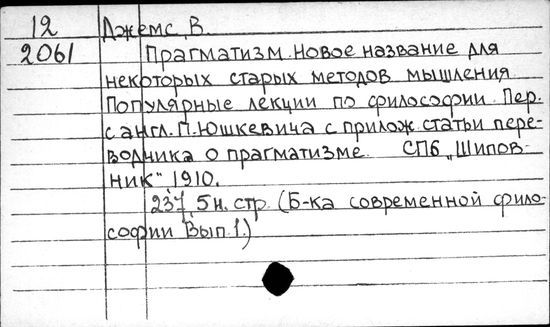 12 Джемс, В.
2061 Прагматизм. Новое название для
некоторых старых методов мышления
Популярные лекции по философии. Пер.
с англ. П. Юшкевича с прилож. статьи пере-
водчика о прагматизме. СПб „Шипов-
ник" 1910.
237, 5 н. стр. (Б-ка современной фило-
софии Вып. 1.)